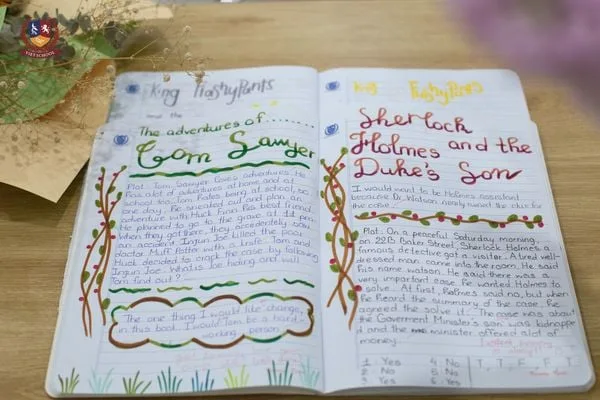 VIETSCHOOL
King FlashyPants
and the
The adventures of........
Tom Sawyer
Plot: Tom Sawyer loves adventures. He
has alot of adventures at home and at
school too. Tom hates being at school, so
one day, he sneaked out and plan an
adventure with Huck Finn his best friend.
He planned to go to the grave at
When they got there, they accidentally saw
an accident. Ingun Joe killed the poor
doctor Muff Potter with a knife. Tom and
Huck decided to crack the case by following
Ingun Joe. What is Joe hiding and will
Tom find out?
The one thing I would like change,
in this book. I would Tom be a hard-
working person.
King FlashyPants
Sherlock
Holmes and the
Duke's Son
I would want to be Holmes assistant
because Dr Watson nearly owned the clue for
the case.
Plot: On a peaceful Saturday morning
on 221B Baker Street, Sherlock Holmes a
famous detective got a visiter. A well-
dressed man came into the room. He said
his name Watson. He said there was a
very important case. He wanted Holmes to
solve. At first, Holmes said no, but when
he heard the summary of the case, he
agreed the solve it. The case was about
the Goverment Minister's son was kidnapped
and the minister offered alot of
money.
1 - Yes 4 - No
2 - No 5 - No
3 - Yes 6 - Yes
T, T, F, F, T